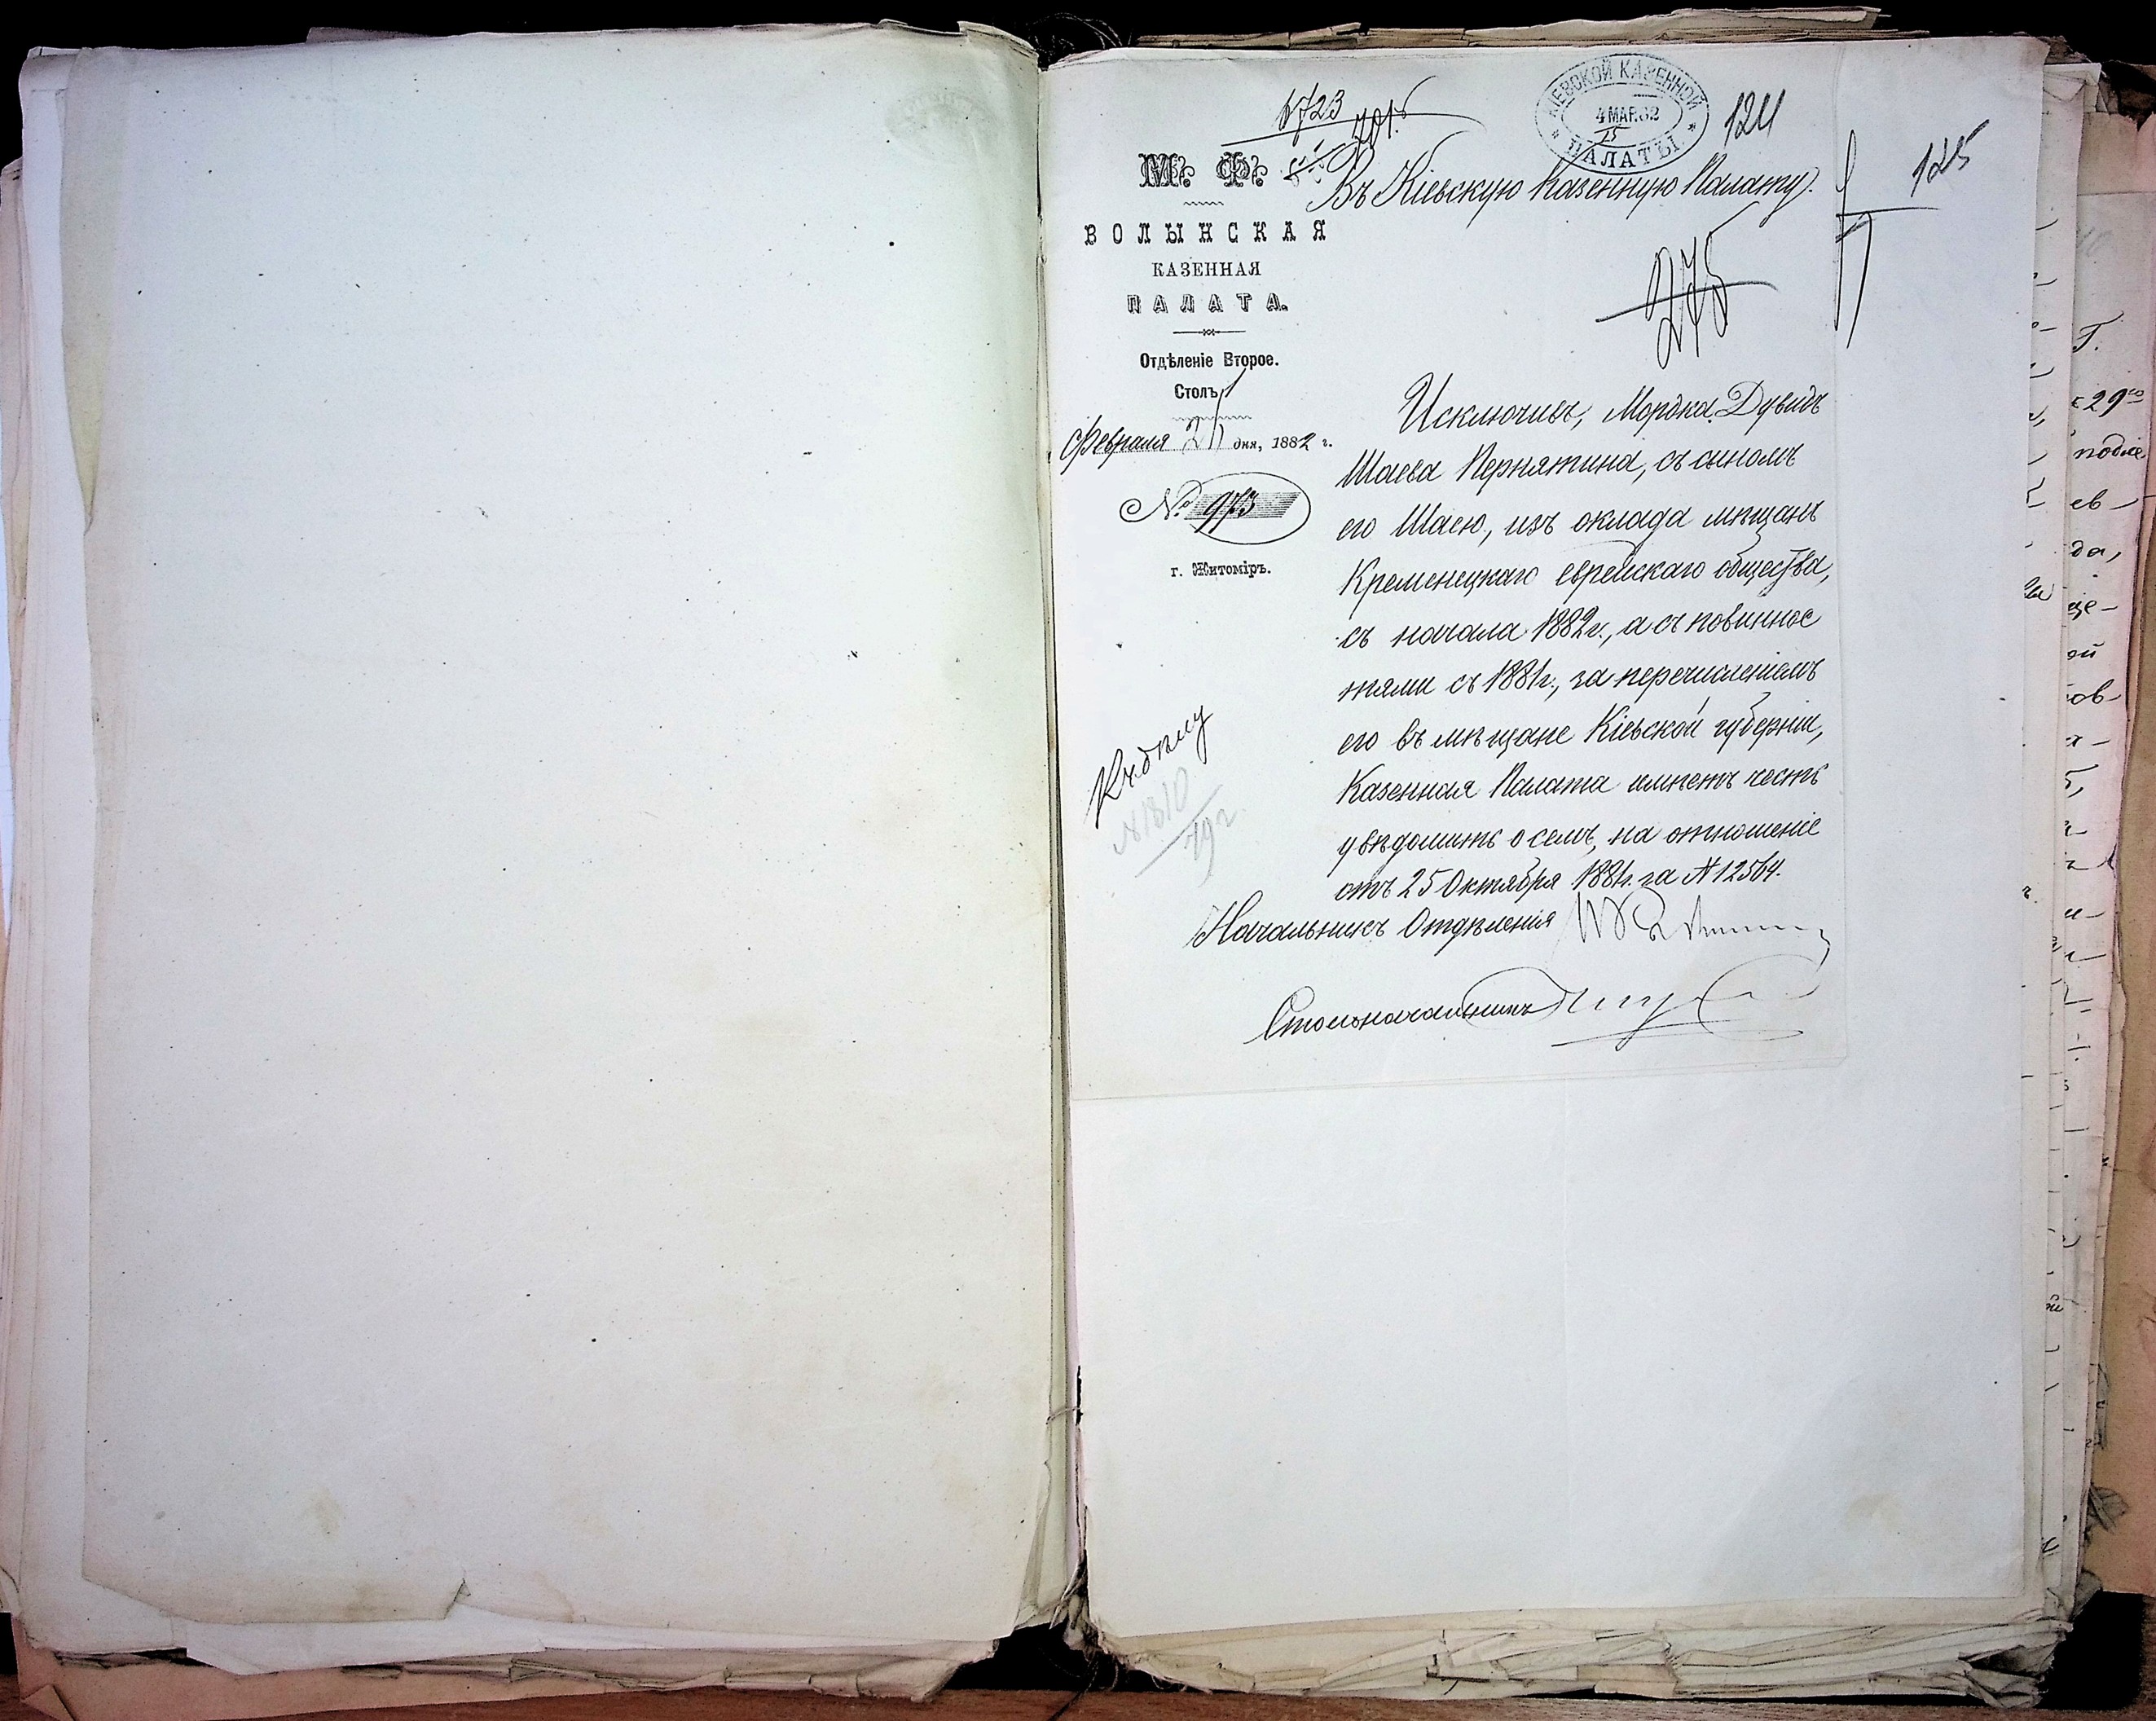 1723
КІЕВСКОЙ КАЗЕННОЙ
4 МАР. 82
ПАЛАТЫ
124
125
М. Ф.
Въ Кіевскую Казенную Палату.
ВОЛЫНСКАЯ
КАЗЕННАЯ
ПАЛАТА.
275
Отдѣленіе Второе.
Столъ 1
Февраля дня, 1882 г.
№ 973
г. Житоміръ.
Исключивъ, Мордка Дувидъ
Шаева Пернятина, съ сыномъ
его Шаею, изъ оклада мѣщанъ
Кременецкаго еврейскаго общества,
съ начала 1882 г., а съ повиннос
тями съ 1881 г., за перечисленіемъ
его въ мѣщане Кіевской губерніи,
Казенная Палата имѣетъ честь
увѣдомить о семъ, на отношеніе
отъ 25 Октября 1881 г. за № 12564.
Къ дѣлу
№ 1810
79 г.
Начальникъ Отдѣленія
Столоначальникъ